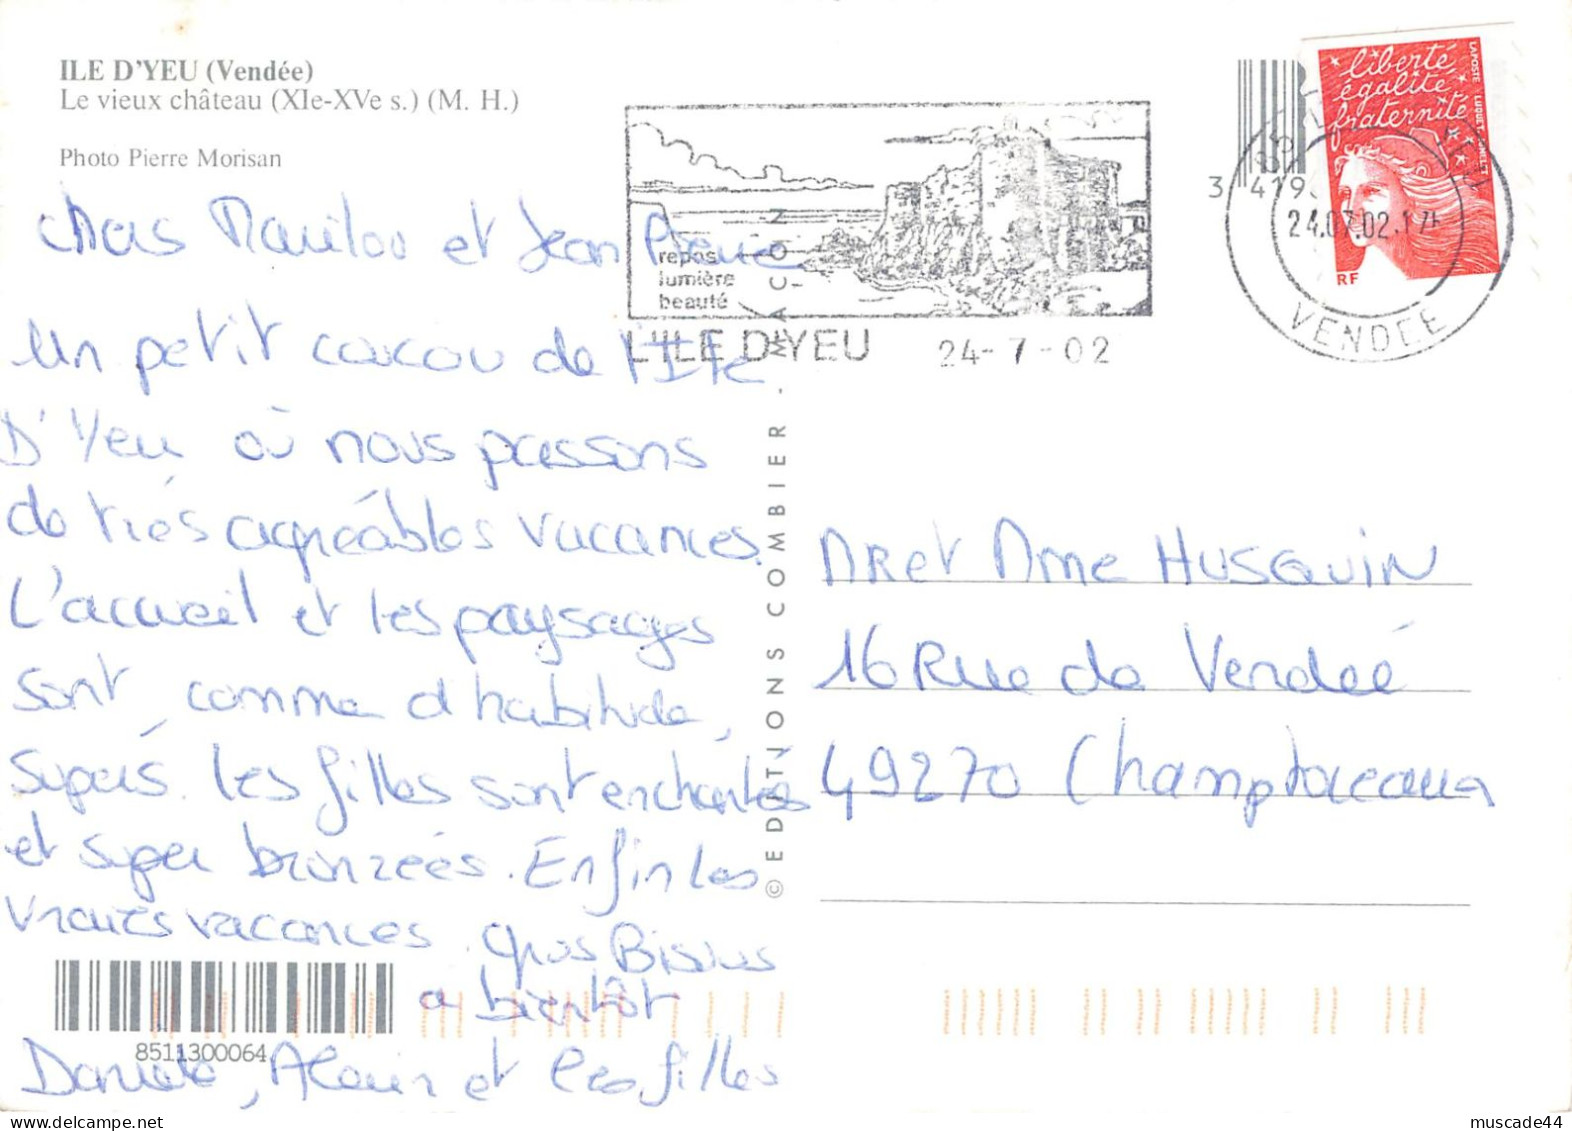 ILE D'YEU (Vendée)
Le vieux château (XIe-XVe s.) (M. H.)
Photo Pierre Morisan
chers Mailou et Jean Pierre
Un petit coucou de l'Ile
D'Yeu où nous passons
de très agréables vacances.
L'accueil et les paysages
sont, comme d'habitude,
supers. Les filles sont enchantées
et super bronzées. Enfin les
vraies vacances. Gros Bisous
a bientôt
Daniele, Alain et les filles
8511300064
© EDITIONS COMBIER - MACON
repos
lumière
beauté
L'ILE D'YEU 24-7-02
3 419
liberté
égalité
fraternité
LAPOSTE
RF
24.07.02.17H
VENDEE
MR et Mme HUSQUIN
16 Rue de Vendée
49270 Champtoceaux
muscade44